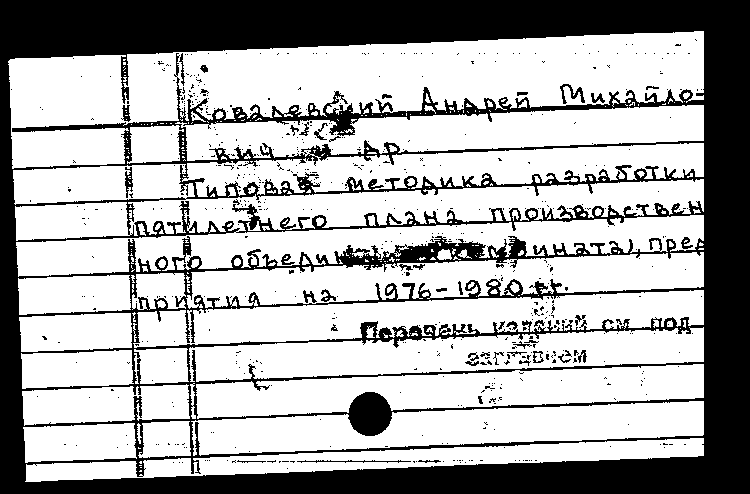 Ковалевский, Андрей Михайло-
вич и др.
Типовая методика разработки
пятилетнего плана производствен
ного объединения (комбината), пред
приятия на 1976-1980 гг.
Перечень изданий см. под
заглавием